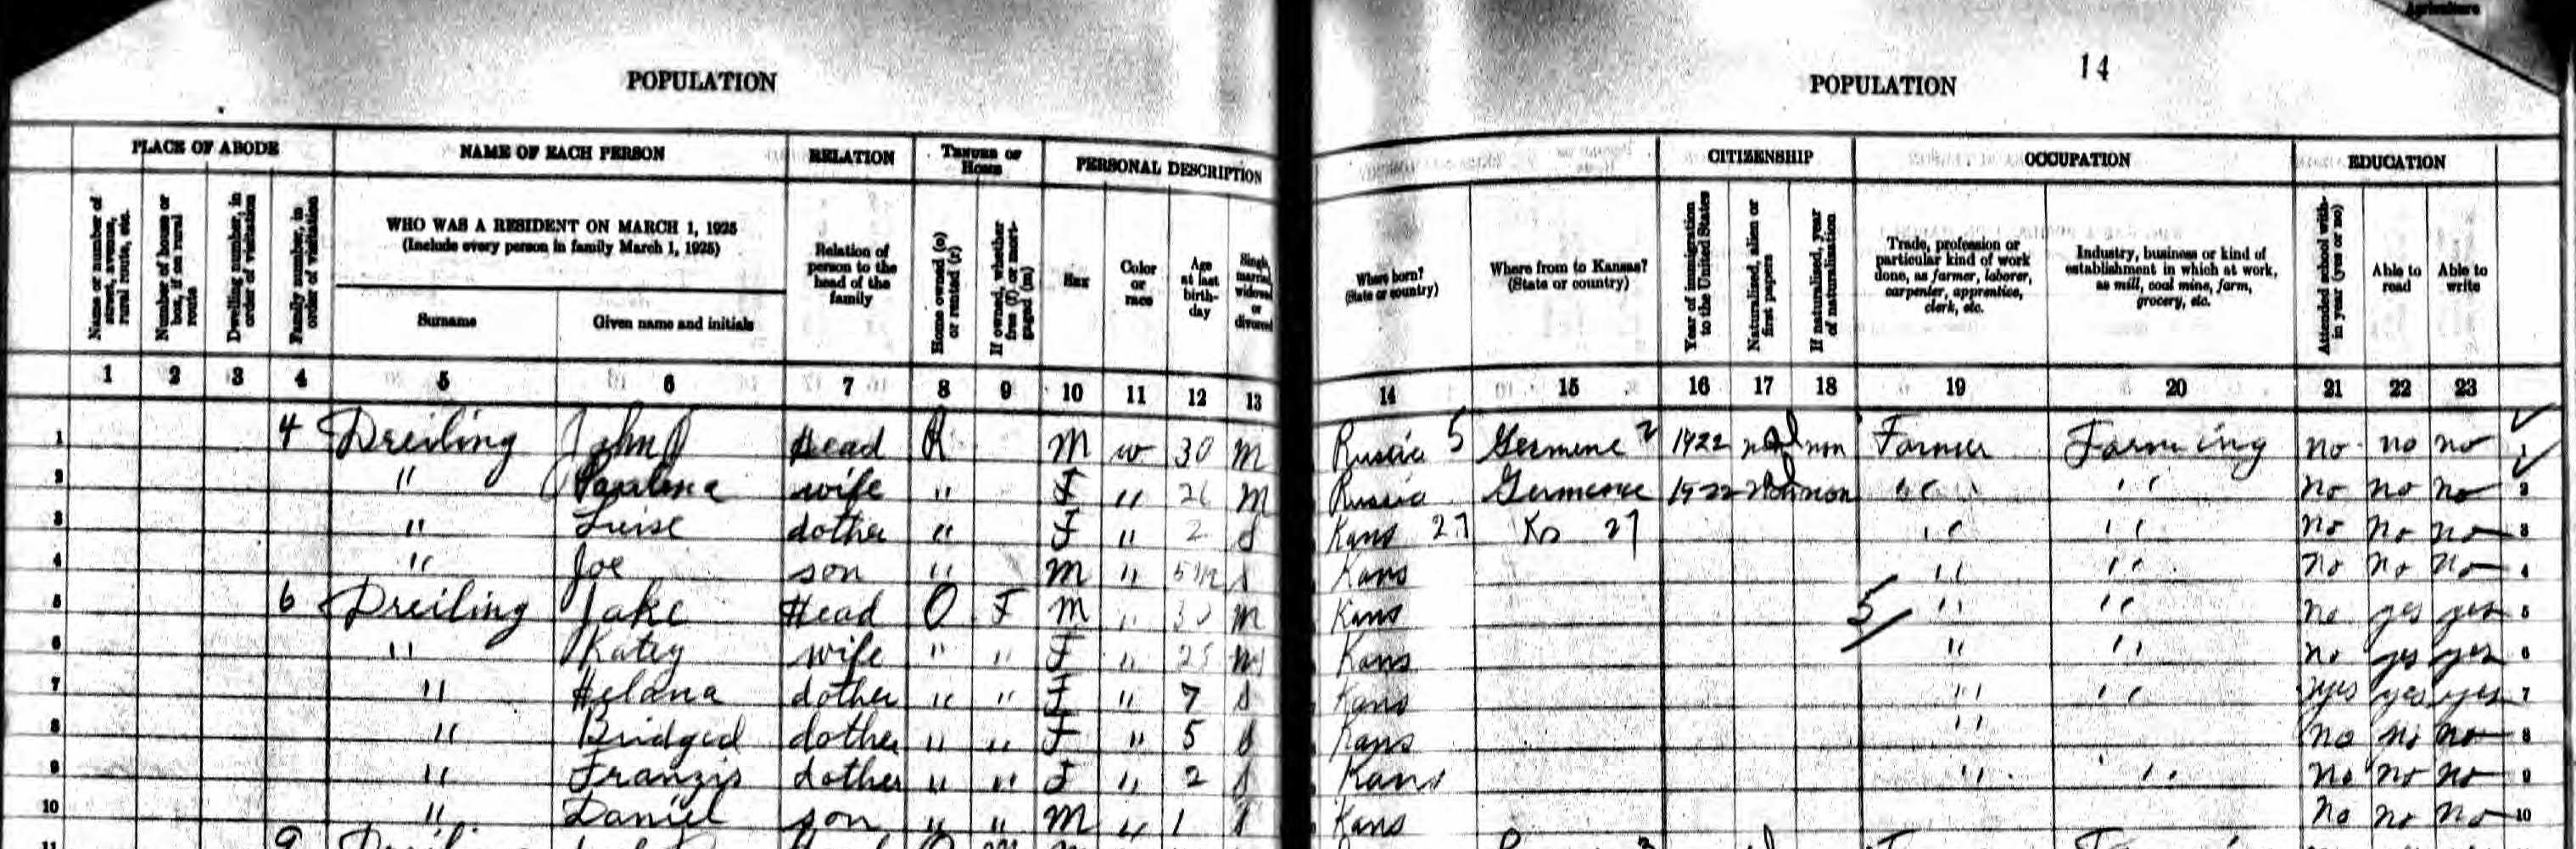 Agriculture
14
POPULATION POPULATION
PLACE OF ABODE NAME OF EACH PERSON RELATION TENURE OF HOME PERSONAL DESCRIPTION CITIZENSHIP OCCUPATION EDUCATION
Name or number of street, avenue, rural route, etc.
Number of house or box, if on rural route
Dwelling number, in order of visitation
Family number, in order of visitation
WHO WAS A RESIDENT ON MARCH 1, 1925
(Include every person in family March 1, 1925)
Surname Given name and initials
Relation of person to the head of the family
Home owned (o) or rented (r)
If owned, whether free (f) or mortgaged (m)
Sex
Color or race
Age at last birth-day
Single, married, widowed or divorced
Where born? (State or country)
Where from to Kansas? (State or country)
Year of immigration to the United States
Naturalized, alien or first papers
If naturalized, year of naturalization
Trade, profession or particular kind of work done, as farmer, laborer, carpenter, apprentice, clerk, etc.
Industry, business or kind of establishment in which at work, as mill, coal mine, farm, grocery, etc.
Attended school with-in year (yes or no)
Able to read
Able to write
1 2 3 4 5 6 7 8 9 10 11 12 13 14 15 16 17 18 19 20 21 22 23
1 4 Dreiling John Head R M w 30 M Russia 5 Germene 2 1922 non Farmer Farming no no no 1
2 " Paulena wife " F " 26 M Russia Germene 1922 non " " no no no 2
3 " Luise dother " F " 2 S Kans 27 Ks 27 " " no no no 3
4 " Joe son " M " 5m S Kans " " no no no 4
5 6 Dreiling Jake Head O F M " 30 M Kans 5/ " " no yes yes 5
6 " Katey wife " " F " M Kans " " no yes yes 6
7 " Helana dother " " F " 7 S Kans " " yes yes yes 7
8 " Bridged dother " " F " 5 S Kans " no no no 8
9 " Franzis dother " " F " 2 S Kans " " no no no 9
10 " Daniel son " " M " 1 S Kans no no no 10
11 9